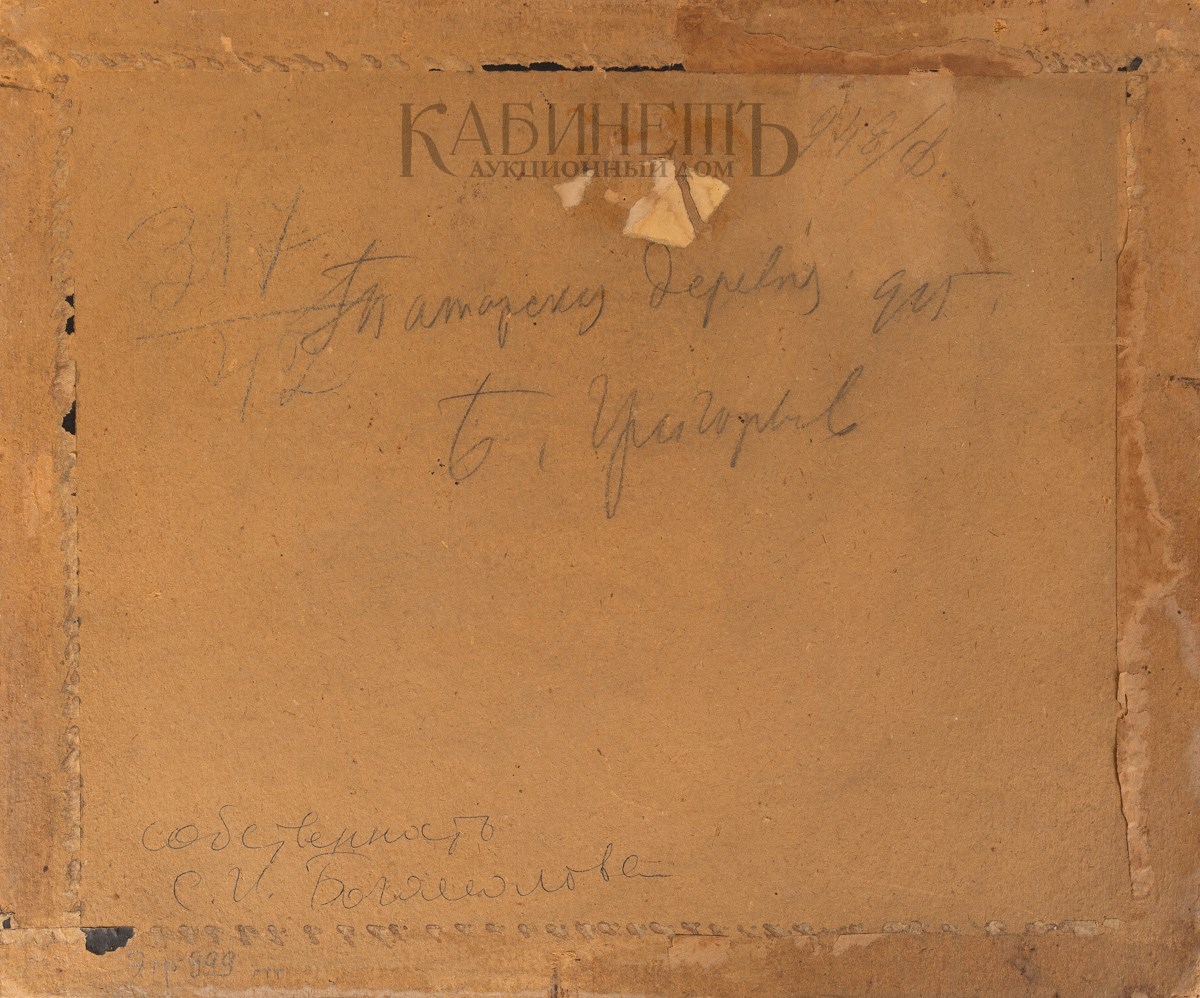 КАБИНЕТЪ
АУКЦИОННЫЙ ДОМ
317
Татарская деревня
Б. Григорьев
собственность
С. И. Богомолова